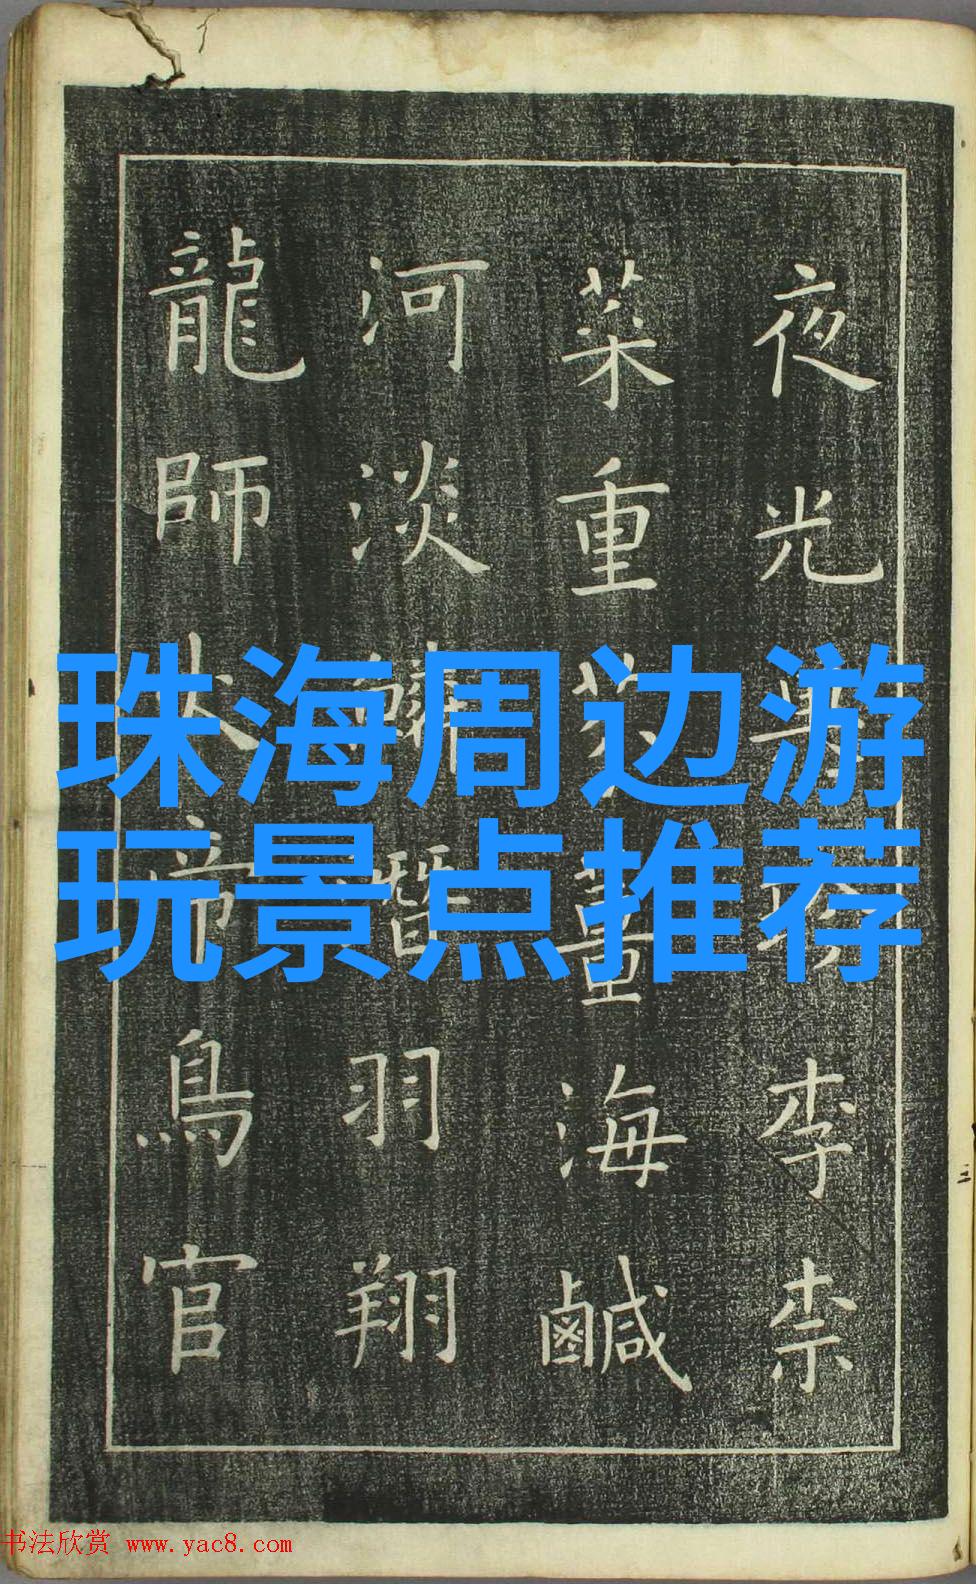 珠海周边游
玩景点推荐
夜光果珍李柰
菜重芥薑海鹹
河淡鱗潛羽翔
龍師火帝鳥官
书法欣赏 www.yac8.com